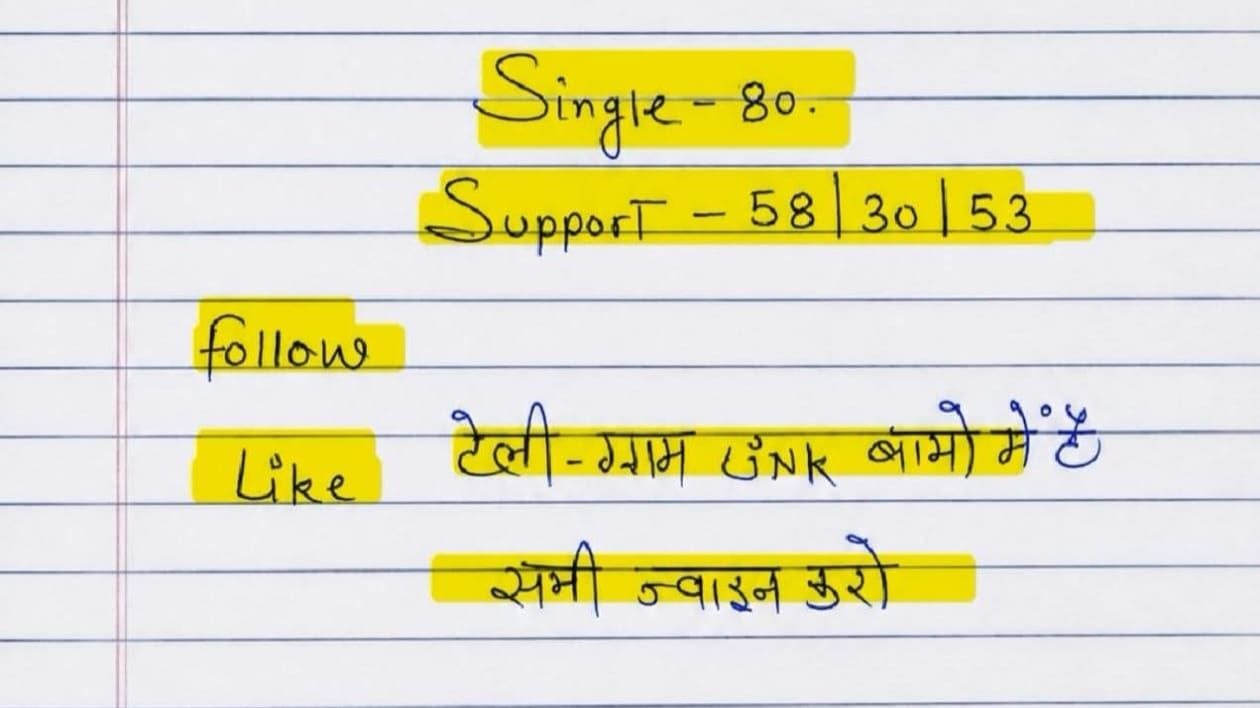 Single - 80.
Support - 58|30|53
follow
Like
टेली-ग्राम Link बायो में है
सभी ज्वाइन करो